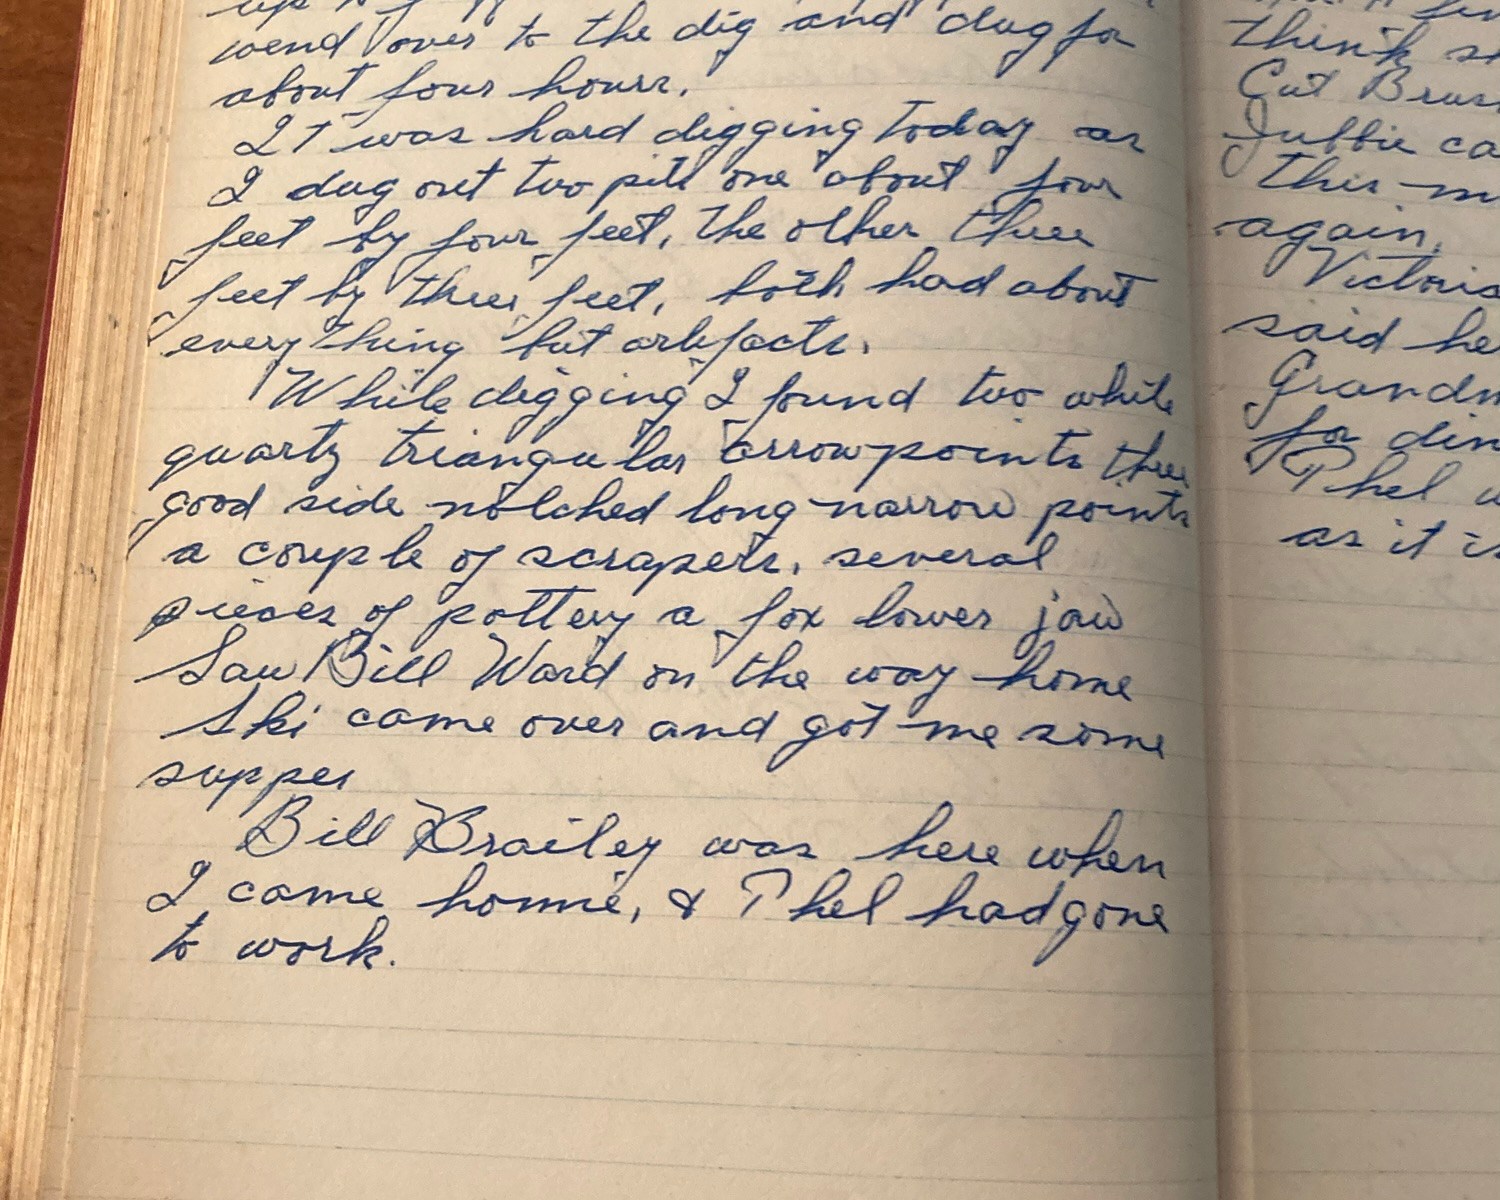 wend over to the dig and dug for
about four hours.
It was hard digging today as
I dug out two pits one about four
feet by four feet, the other three
feet by three feet, both had about
everything but artefacts.
While digging I found two white
quartz triangular arrowpoints three
good side notched long narrow points
a couple of scrapers, several
pieces of pottery a fox lower jaw
Saw Bill Ward on the way home
Ski came over and got me some
supper
Bill Brailey was here when
I came home, & Phel had gone
to work.
think
Cut
Jubbie
this
again,
Victoria
said he
for
Phel
as it